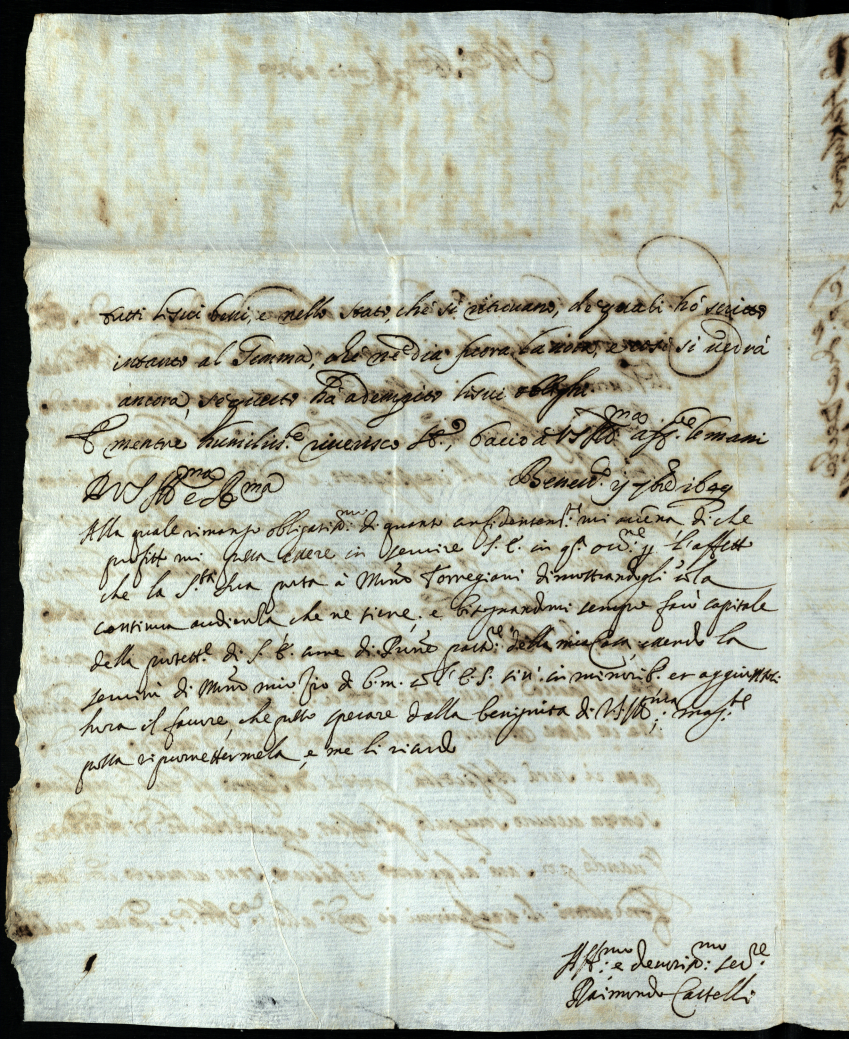 tutti li suoi beni, e nello stato, che si ritrovano, de quali hò scritto
intanto al Temma, che ne dia fuora la nota, e così si vedrà
ancora, se questo hà adempito li sui oblighi.
E mentre humiliss.te riverisco V.S. Ill.ma bacio aff.te le mani
Di V.S. Ill.ma e R.ma Benev.to 7bre 1649
Alla quale rimango obligatiss.mo di quanto confidentem.te mi accena di che
profitto mi possa essere in servire S. E. in q.sta occ.ne l'affetto
che la S.tà Sua porta à Mons.r Torregiani dimostrandogli con la
continua audienza che ne tiene, e bisognandomi sempre farò capitale
della protett.e di S. E. come di Pad.rone della mia Casa essendo la
servitù di Mons.r mio Zio di b.m. con S.E. sin in minorib. et aggiuntoli
hora il favore, che posso sperare dalla benignità di V.S. Ill.ma
possa ripromettermela, e me li ricordo
Aff.mo e devotiss.mo ser.re
Raimondo Castelli